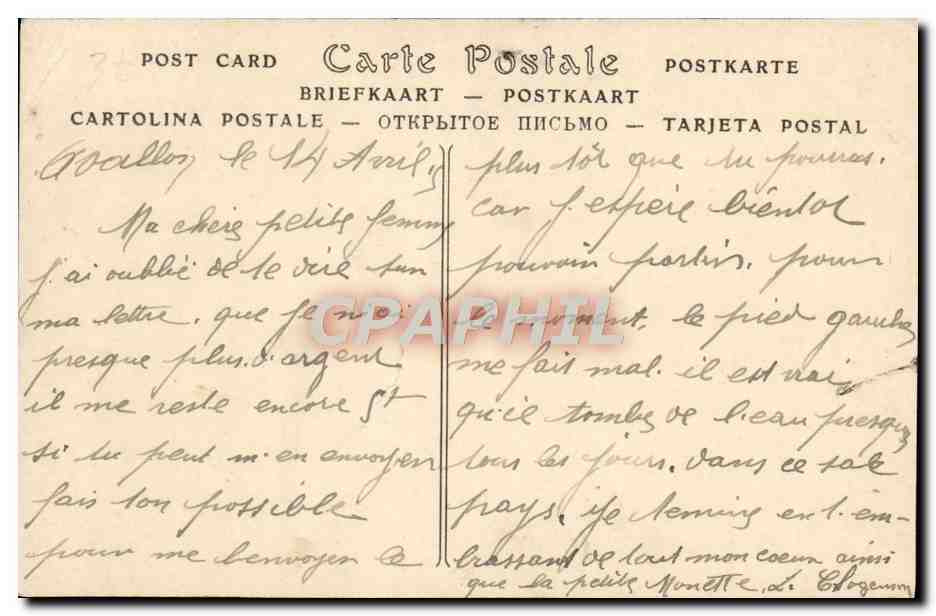 POST CARD Carte Postale POSTKARTE
BRIEFKAART — POSTKAART
CARTOLINA POSTALE — ОТКРЫТОЕ ПИСЬМО — TARJETA POSTAL
Avallon le 14 Avril 15
Ma chère petite femme
j'ai oublié de te dire sur
ma lettre, que je n'ai
presque plus d'argent
il me reste encore 5f
si tu peut m'en envoyer
fais ton possible
pour me l'envoyer le
plus tôt que tu pourras.
car j'espère bientot
pouvoir partir. pour
le moment, le pied gauche
me fait mal. il est vrai
qu'il tombe de l'eau presque
tous les jours. dans ce sale
pays. je termine en t'em-
brassant de tout mon coeur ainsi
que la petite Monette, L.
CPAPHIL